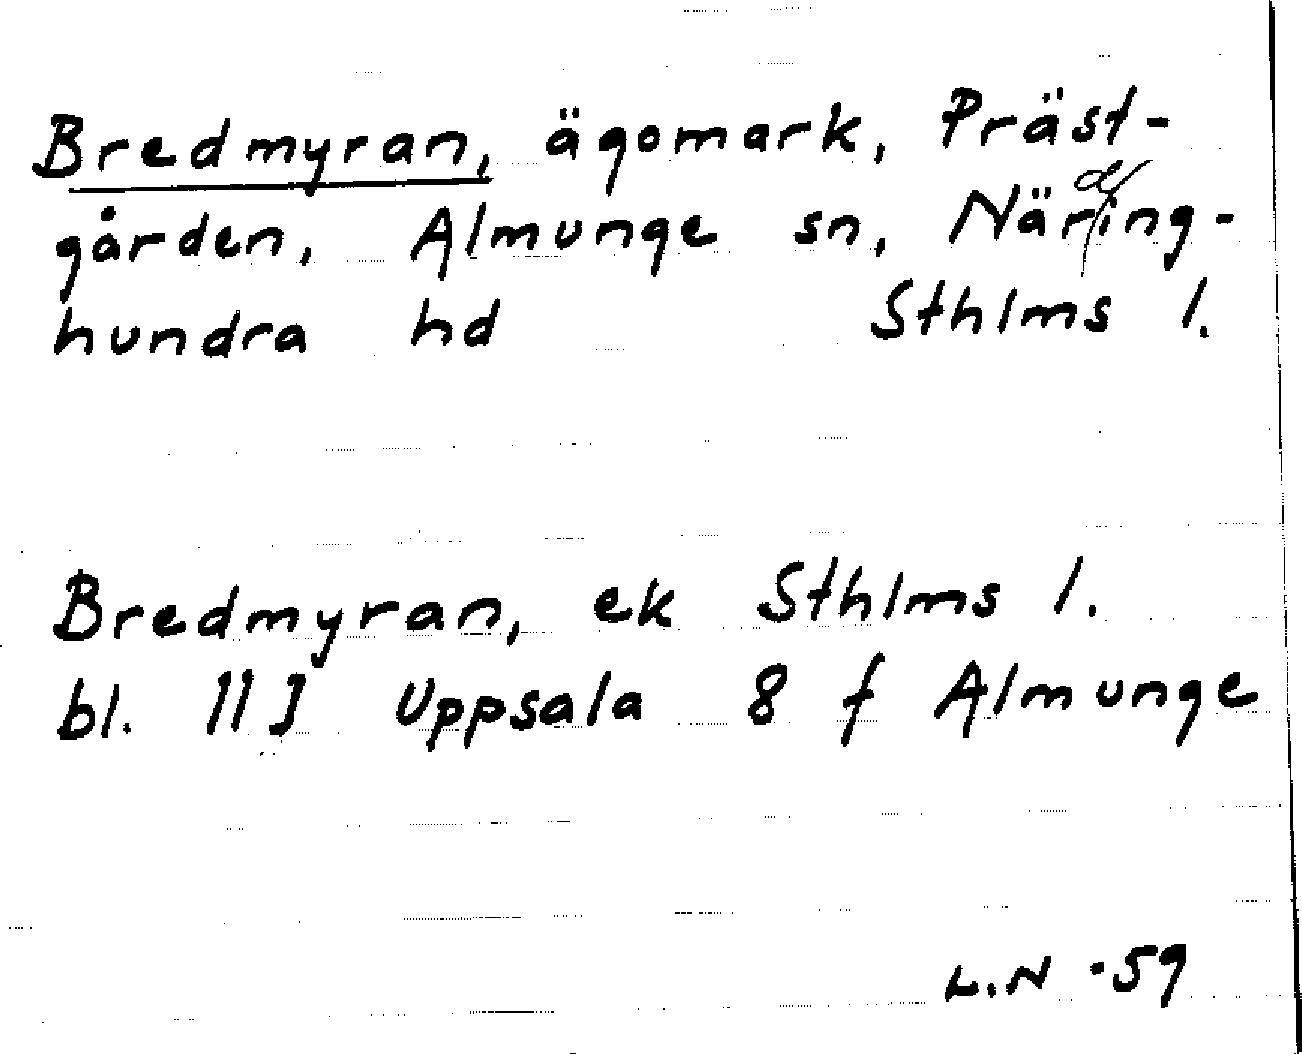 Bredmyran, ägomark, Präst-
gården, Almunge sn, Näring-
hundra hd Sthlms l.
Bredmyran, ek Sthlms l.
bl. 11J Uppsala 8 f Almunge
L.N -59